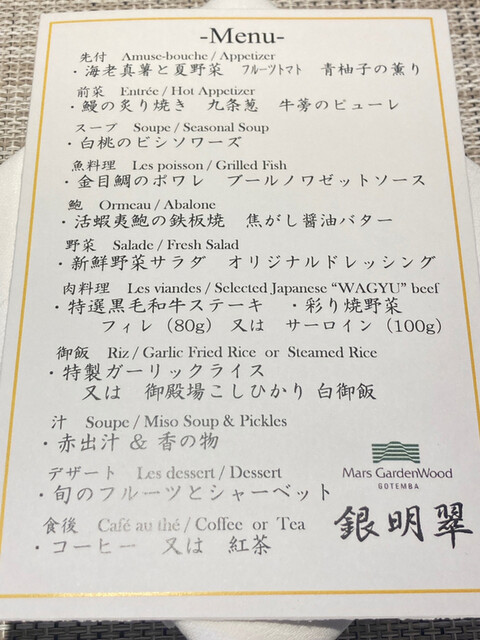 -Menu-
先付 Amuse-bouche / Appetizer
・海老真薯と夏野菜 フルーツトマト 青柚子の薫り
前菜 Entrée / Hot Appetizer
・鰻の炙り焼き 九条葱 牛蒡のピューレ
スープ Soupe / Seasonal Soup
・白桃のビシソワーズ
魚料理 Les poisson / Grilled Fish
・金目鯛のポワレ ブールノワゼットソース
鮑 Ormeau / Abalone
・活蝦夷鮑の鉄板焼 焦がし醤油バター
野菜 Salade / Fresh Salad
・新鮮野菜サラダ オリジナルドレッシング
肉料理 Les viandes / Selected Japanese “WAGYU” beef
・特選黒毛和牛ステーキ ・彩り焼野菜
フィレ（80g） 又は サーロイン（100g）
御飯 Riz / Garlic Fried Rice or Steamed Rice
・特製ガーリックライス
又は 御殿場こしひかり 白御飯
汁 Soupe / Miso Soup & Pickles
・赤出汁 & 香の物
デザート Les dessert / Dessert
・旬のフルーツとシャーベット
食後 Café au thé / Coffee or Tea
・コーヒー 又は 紅茶
Mars GardenWood
GOTEMBA
銀明翠